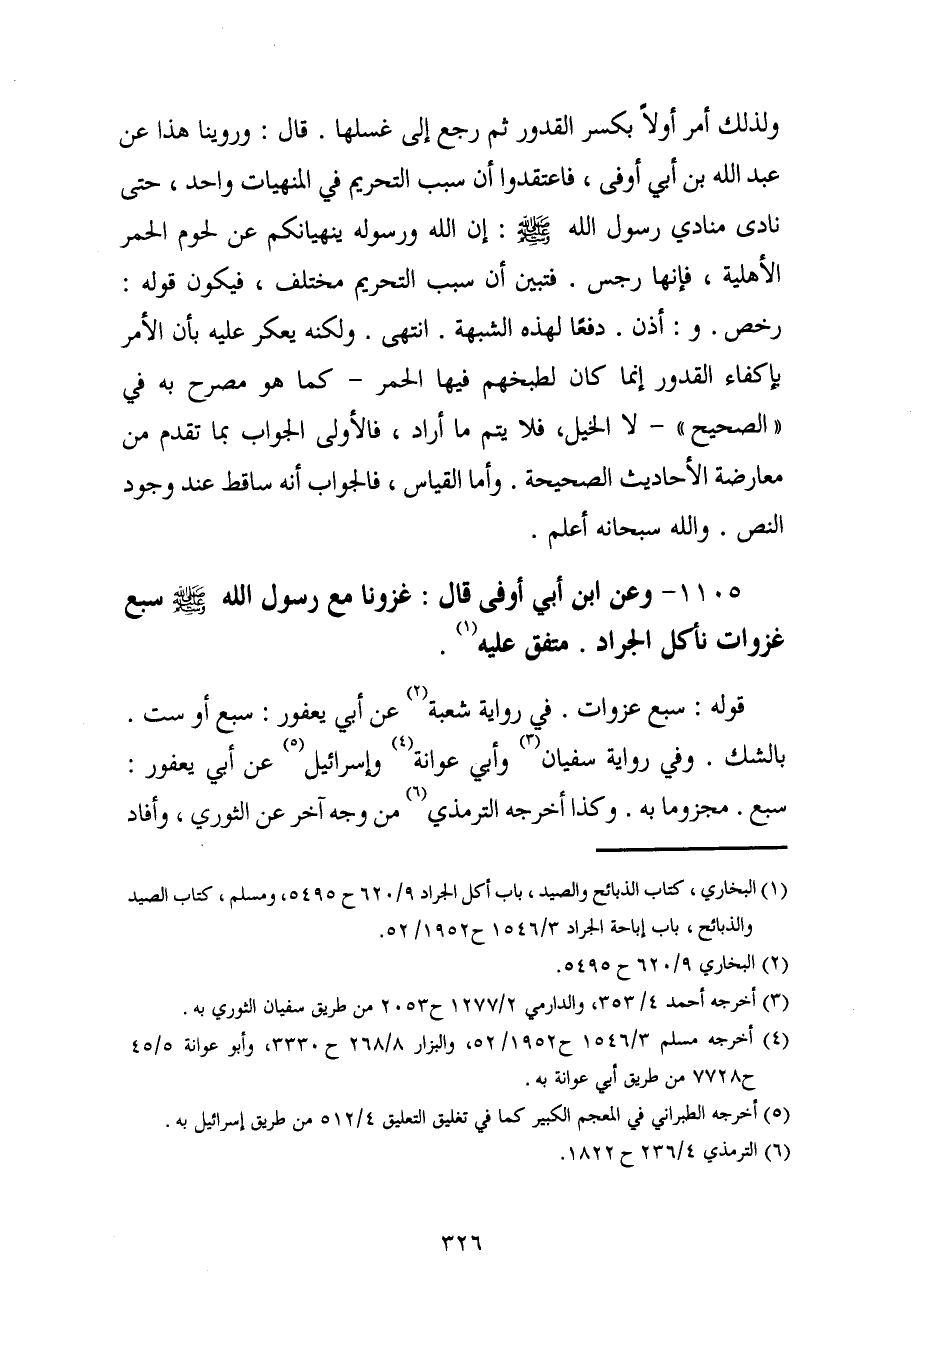 ولذلك أمر أولاً بكسر القدور ثم رجع إلى غسلها . قال : وروينا هذا عن
عبد الله بن أبي أوفى ، فاعتقدوا أن سبب التحريم في المنهيات واحد ، حتى
نادى منادي رسول الله ﷺ : إن الله ورسوله ينهيانكم عن لحوم الحمر
الأهلية ، فإنها رجس . فتبين أن سبب التحريم مختلف ، فيكون قوله :
رخص . و : أذن . دفعًا لهذه الشبهة . انتهى . ولكنه يعكر عليه بأن الأمر
بإكفاء القدور إنما كان لطبخهم فيها الحمر – كما هو مصرح به في
«الصحيح» – لا الخيل، فلا يتم ما أراد ، فالأولى الجواب بما تقدم من
معارضة الأحاديث الصحيحة . وأما القياس ، فالجواب أنه ساقط عند وجود
النص . والله سبحانه أعلم .
١١٠٥- وعن ابن أبي أوفى قال : غزونا مع رسول الله ﷺ سبع
غزوات نأكل الجراد . متفق عليه(١) .
قوله : سبع عزوات . في رواية شعبة(٢) عن أبي يعفور : سبع أو ست .
بالشك . وفي رواية سفيان(٣) وأبي عوانة(٤) وإسرائيل(٥) عن أبي يعفور :
سبع . مجزوما به . وكذا أخرجه الترمذي(٦) من وجه آخر عن الثوري ، وأفاد
(١) البخاري ، كتاب الذبائح والصيد ، باب أكل الجراد ٦٢٠/٩ ح ٥٤٩٥، ومسلم ، كتاب الصيد
والذبائح ، باب إباحة الجراد ١٥٤٦/٣ ح١٩٥٢/ ٥٢.
(٢) البخاري ٦٢٠/٩ ح ٥٤٩٥.
(٣) أخرجه أحمد ٤/ ٣٥٣، والدارمي ١٢٧٧/٢ ح٢٠٥٣ من طريق سفيان الثوري به .
(٤) أخرجه مسلم ١٥٤٦/٣ ح١٩٥٢/ ٥٢، والبزار ٢٦٨/٨ ح ٣٣٣٠، وأبو عوانة ٤٥/٥
ح٧٧٢٨ من طريق أبي عوانة به .
(٥) أخرجه الطبراني في المعجم الكبير كما في تغليق التعليق ٥١٢/٤ من طريق إسرائيل به .
(٦) الترمذي ٢٣٦/٤ ح ١٨٢٢.
٣٢٦